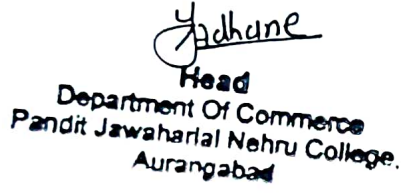 Jadhane
Head
Department Of Commerce
Pandit Jawaharlal Nehru College.
Aurangabad